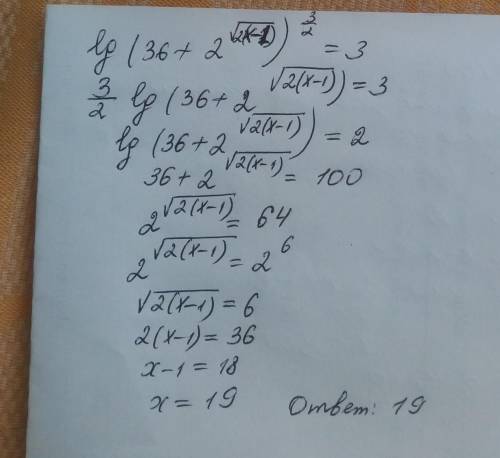 lg (36 + 2^{√2(x-1)})^{3/2} = 3
3/2 lg (36 + 2^{√2(x-1)}) = 3
lg (36 + 2^{√2(x-1)}) = 2
36 + 2^{√2(x-1)} = 100
2^{√2(x-1)} = 64
2^{√2(x-1)} = 2^6
√2(x-1) = 6
2(x-1) = 36
x-1 = 18
x = 19 Ответ: 19